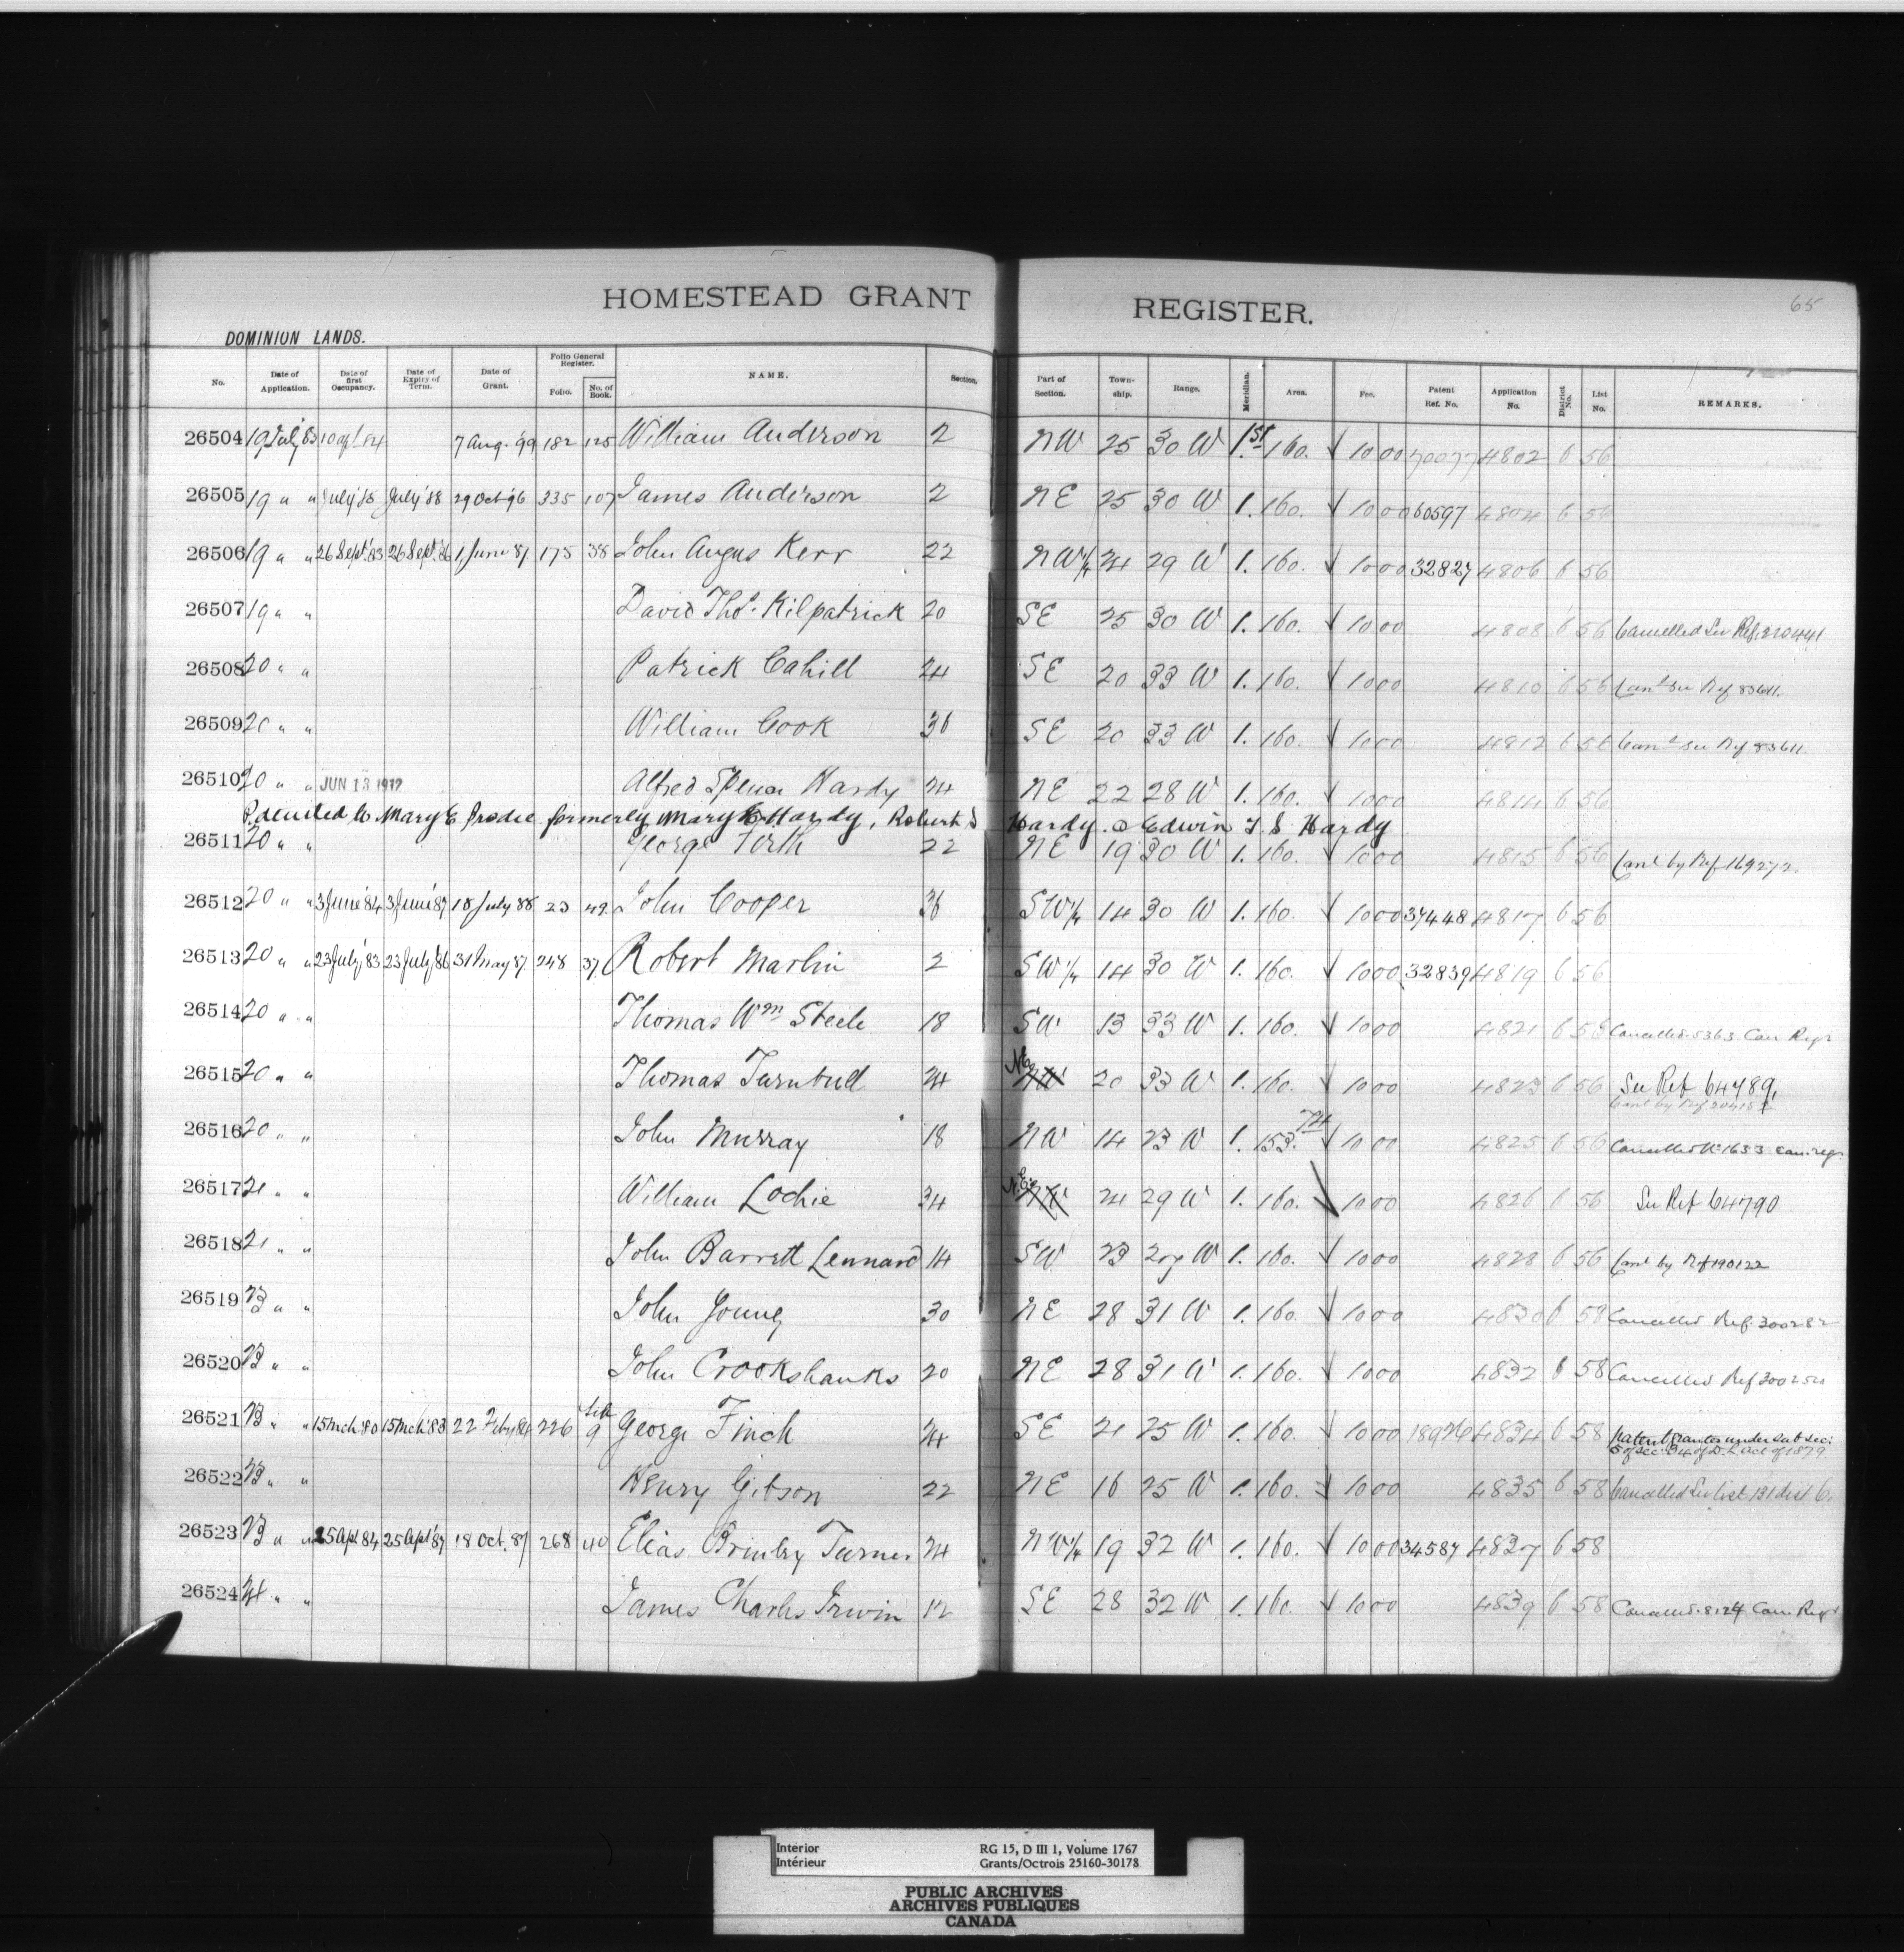 65
HOMESTEAD GRANT REGISTER.
DOMINION LANDS.
No. Date of Application. Date of first Occupancy. Date of Expiry of Term. Date of Grant. Folio General Register. Folio. No. of Book. NAME. Section. Part of Section. Town-ship. Range. Meridian. Area. Fee. Patent Ref. No. Application No. District No. List No. REMARKS.
26504 19 July '83 10 apl. 84 7 Aug. '99 182 125 William Anderson 2 NW 25 30 W 1st 160. 10 00 70077 4802 6 56
26505 19 " " July '85 July '88 29 Oct '96 335 107 James Anderson 2 NE 25 30 W 1. 160. 10 00 60597 4804 6 56
26506 19 " " 26 Sept. '83 26 Sept. '86 1 June 87 175 38 John Angus Kerr 22 NW¼ 24 29 W 1. 160. 10 00 32827 4806 6 56
26507 19 " " David Thos. Kilpatrick 20 SE 25 30 W 1. 160. 10 00 4808 6 56 Cancelled See Ref. 210441
26508 20 " " Patrick Cahill 24 SE 20 33 W 1. 160. 10 00 4810 6 56 Cand. See Ref 83611.
26509 20 " " William Cook 36 SE 20 33 W 1. 160. 10 00 4812 6 56 Cand. See Ref 83611
26510 20 " " JUN 13 1912 Alfred Spencer Hardy 24 NE 22 28 W 1. 160. 10 00 4814 6 56
Patented to Mary E Brodie formerly Mary E Hardy, Robert S Hardy & Edwin T. S Hardy
26511 20 " " George Firth 22 NE 19 30 W 1. 160. 10 00 4815 6 56 Canl by Ref 169272.
26512 20 " " 3 June '84 3 June '87 18 July 88 23 49 John Cooper 36 SW¼ 14 30 W 1. 160. 10 00 37448 4817 6 56
26513 20 " " 23 July '83 23 July '86 31 May 87 248 37 Robert Martin 2 SW¼ 14 30 W 1. 160. 10 00 32839 4819 6 56
26514 20 " " Thomas Wm Steele 18 SW 13 33 W 1. 160. 10 00 4821 6 56 Cancelled 5363 Can Regr
26515 20 " " Thomas Turnbull 24 NE NW 20 33 W 1. 160. 10 00 4823 6 56 See Ref 64789,
Canl by Ref
26516 20 " " John Murray 18 NW 14 23 W 1. 153.74 10 00 4825 6 56 Cancelled No 1633 Can. regr.
26517 21 " " William Lochie 34 NE NW 24 29 W 1. 160. 10 00 4826 6 56 See Ref 64790
26518 21 " " John Barrett Lennard 14 SW 23 27 W 1. 160. 10 00 4828 6 56 Canl by Ref 190122
26519 23 " " John Young 30 NE 28 31 W 1. 160. 10 00 4830 6 58 Cancelled Ref. 300282
26520 23 " " John Crookshanks 20 NE 28 31 W 1. 160. 10 00 4832 6 58 Cancelled Ref
26521 23 " " 15 Mch '80 15 Mch '83 22 Feby 84 226 9 George Finch 24 SE 21 25 W 1. 160. 10 00 18926 4834 6 58 Patent Granted under sub sec:
5 of sec: 34 of D. L. Act of 1879.
26522 23 " " Henry Gibson 22 NE 16 25 W 1. 160. 10 00 4835 6 58 Cancelled See list 131 dist 6.
26523 23 " " 25 Apl 84 25 Apl '87 18 Oct. 87 268 40 Elias Brinley Turner 24 NW¼ 19 32 W 1. 160. 10 00 34587 4837 6 58
26524 24 " " James Charles Irwin 12 SE 28 32 W 1. 160. 10 00 4839 6 58 Cancelled. 8124 Can. Regr
Interior
Intérieur
RG 15, D III 1, Volume 1767
Grants/Octrois 25160-30178
PUBLIC ARCHIVES
ARCHIVES PUBLIQUES
CANADA